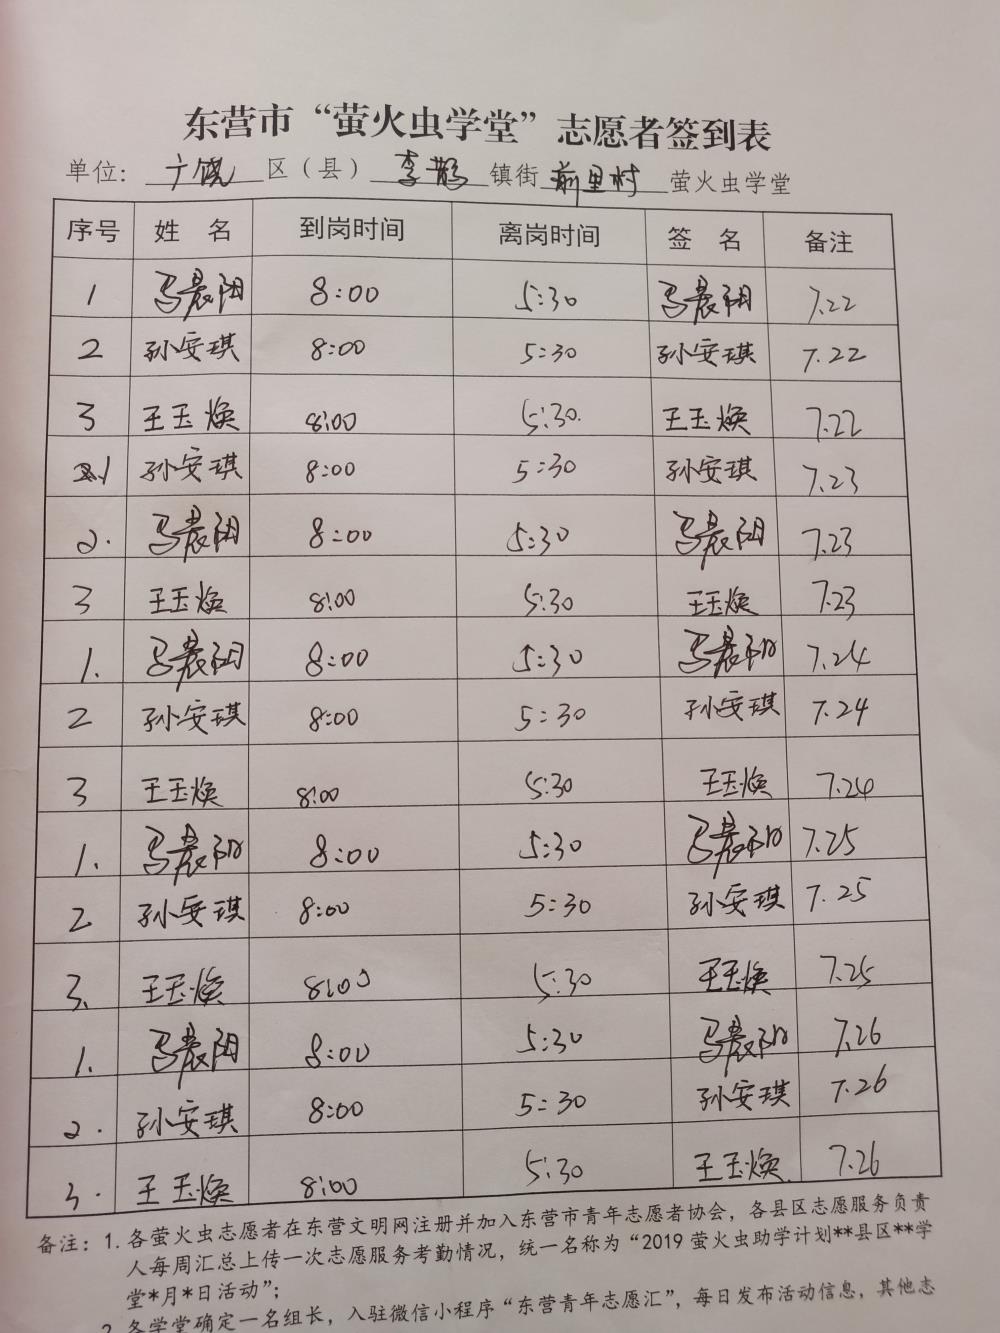 东营市“萤火虫学堂”志愿者签到表
单位：广饶区（县）李鹊镇街前里村萤火虫学堂
序号 姓 名 到岗时间 离岗时间 签 名 备注
1 马晨阳 8:00 5:30 马晨阳 7.22
2 孙安琪 8:00 5:30 孙安琪 7.22
3 王玉焕 8:00 5:30. 王玉焕 7.22
1 孙安琪 8:00 5:30 孙安琪 7.23
2. 马晨阳 8:00 5:30 马晨阳 7.23
3 王玉焕 8:00 5:30 王玉焕 7.23
1. 马晨阳 8:00 5:30 马晨阳 7.24
2 孙安琪 8:00 5:30 孙安琪 7.24
3 王玉焕 8:00 5:30 王玉焕 7.24
1. 马晨阳 8:00 5:30 马晨阳 7.25
2 孙安琪 8:00 5:30 孙安琪 7.25
3. 王玉焕 8:00 5:30 王玉焕 7.25
1. 马晨阳 8:00 5:30 马晨阳 7.26
2. 孙安琪 8:00 5:30 孙安琪 7.26
3. 王玉焕 8:00 5:30 王玉焕 7.26
备注：1. 各萤火虫志愿者在东营文明网注册并加入东营市青年志愿者协会，各县区志愿服务负责
人每周汇总上传一次志愿服务考勤情况，统一名称为“2019 萤火虫助学计划**县区**学
堂*月*日活动”；
2. 各学堂确定一名组长，入驻微信小程序“东营青年志愿汇”，每日发布活动信息，其他志